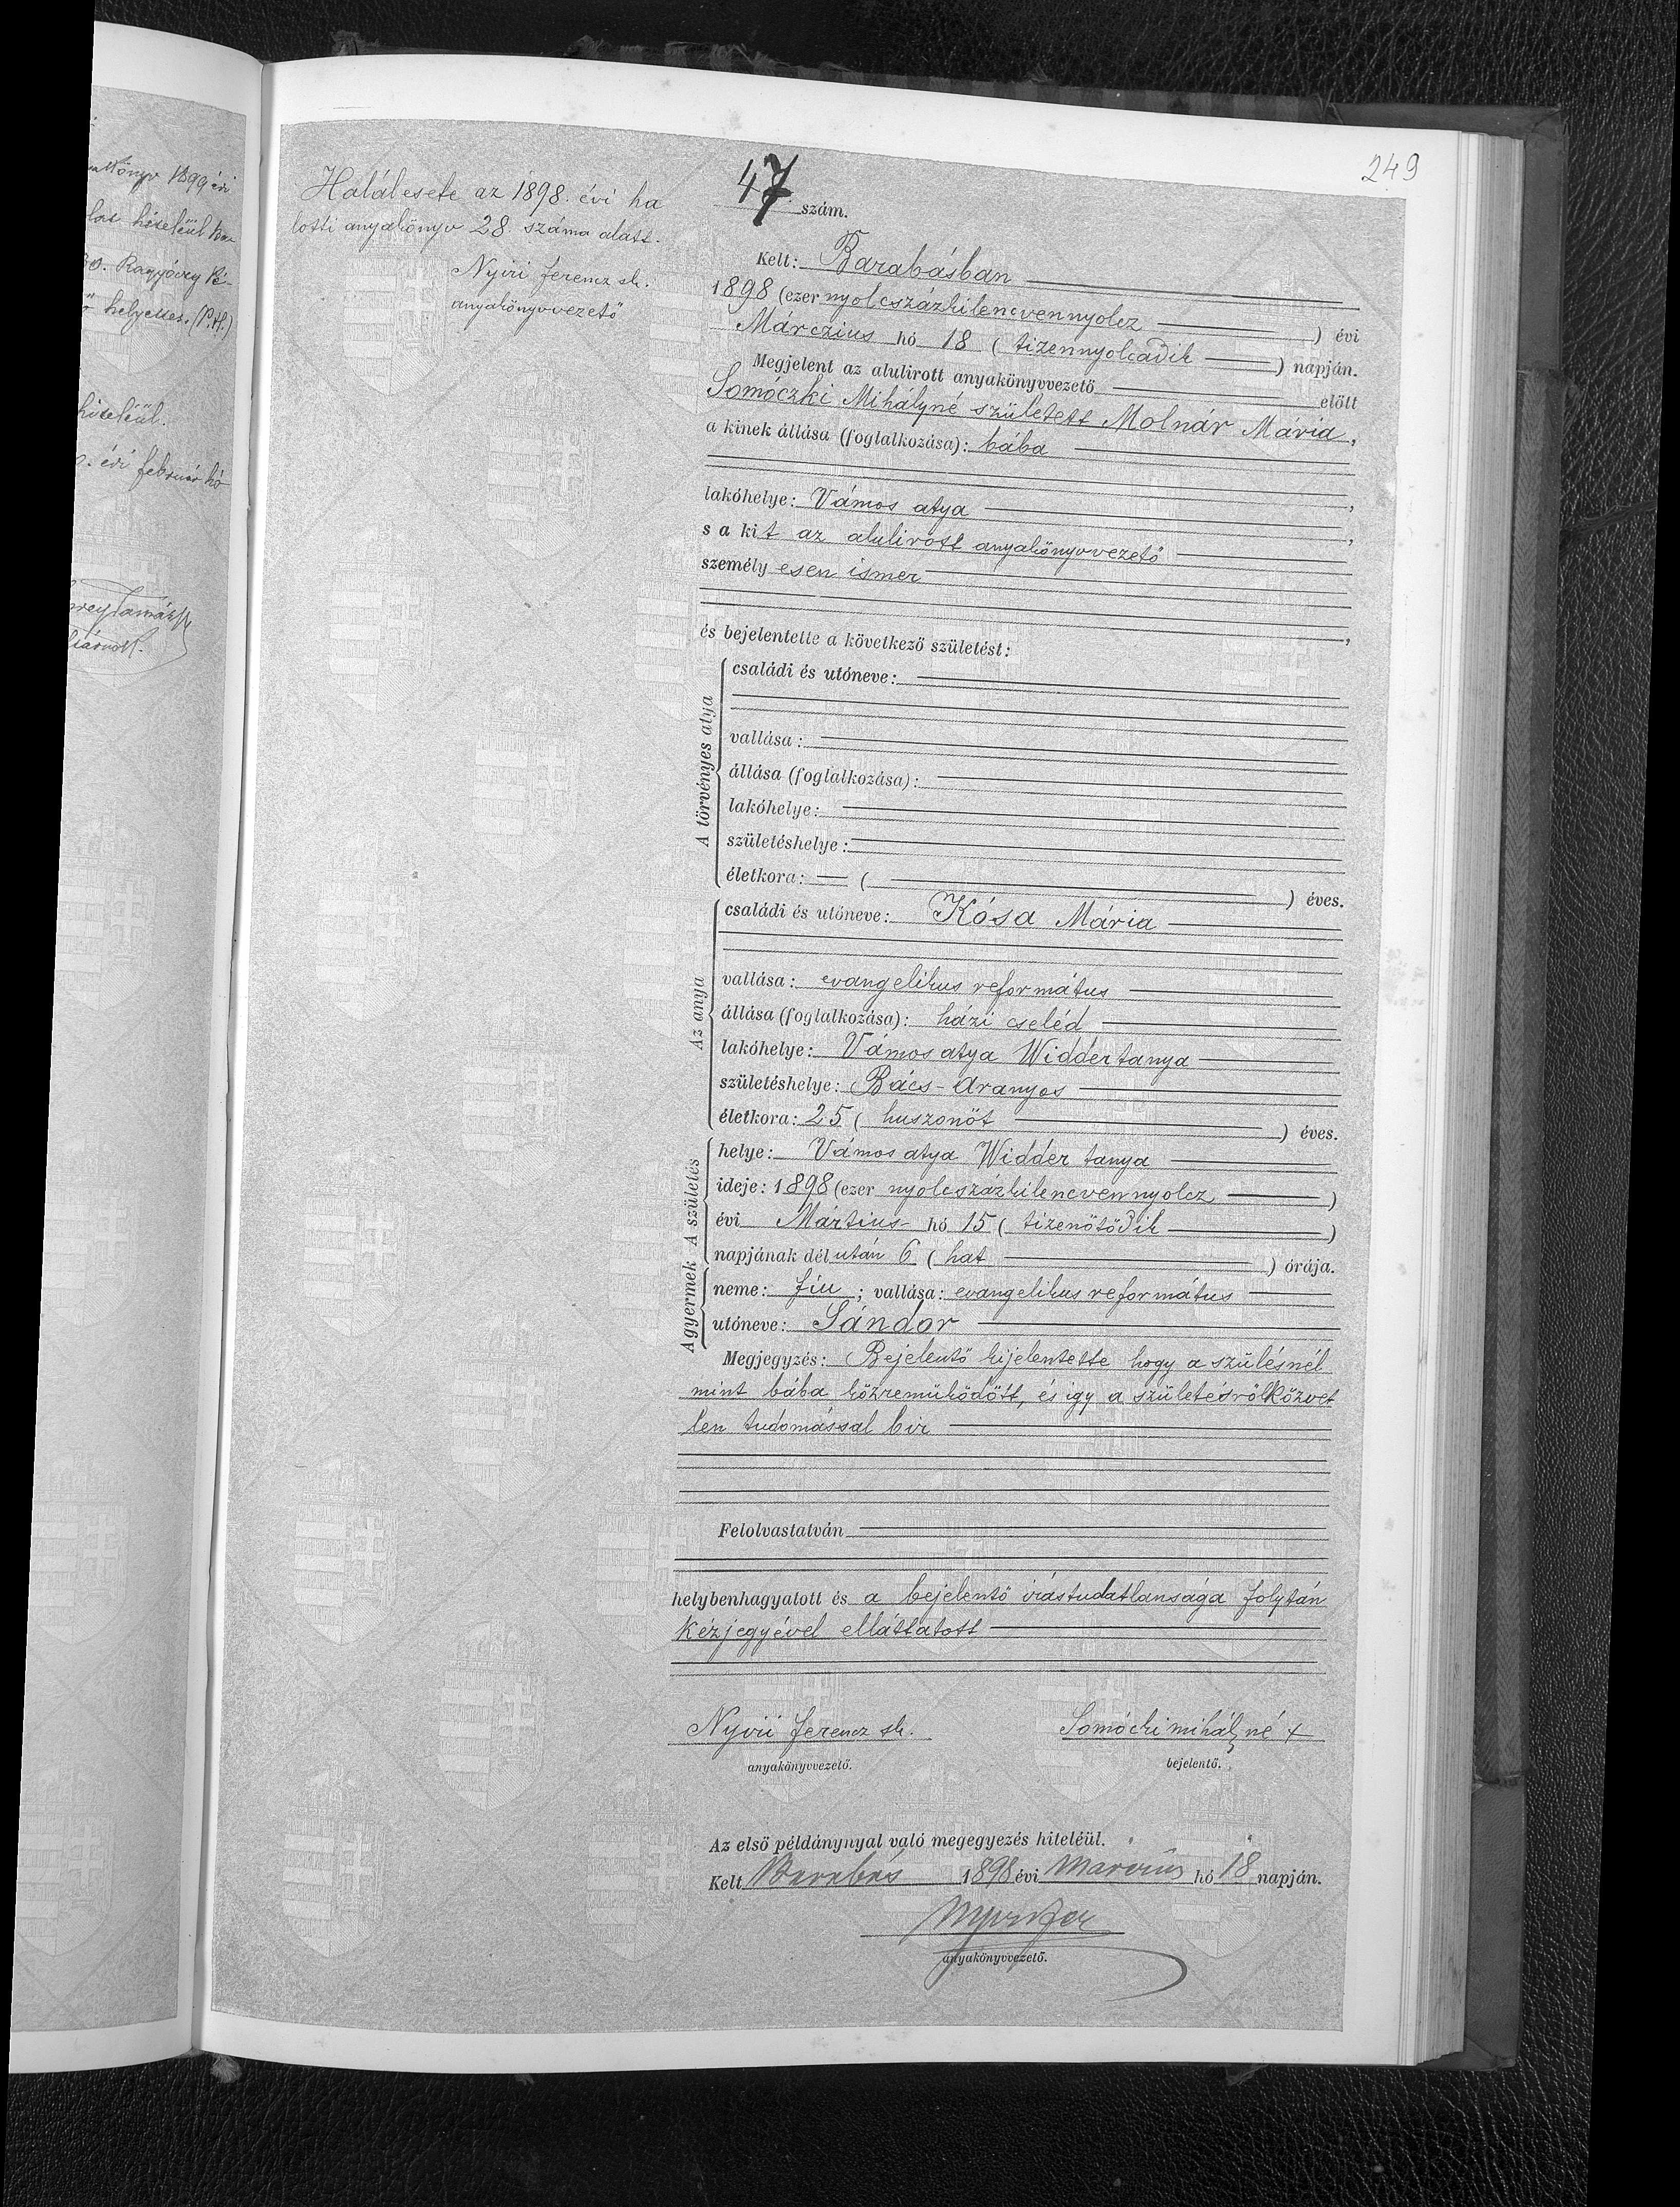 könyv 1899 évi
hiteléül
Ragyóczy
helyettes. (P.H.)
hiteléül.
évi február hó
249
Halálesete az 1898. évi ha
lotti anyakönyv 28 száma alatt.
Nyiri Ferencz sk.
anyakönyvvezető
47 szám.
Kelt: Barabásban
1898 (ezer nyolcszázkilencvennyolcz ) évi
Márczius hó 18 ( tizennyolcadik ) napján.
Megjelent az alulirott anyakönyvvezető előtt
Somóczki Mihályné született Molnár Mária,
a kinek állása (foglalkozása): bába
lakóhelye: Vámos atya ,
s a kit az alulirott anyakönyvvezető ,
személy esen ismer
,
és bejelentette a következő születést:
A törvényes atya
családi és utóneve:
vallása:
állása (foglalkozása):
lakóhelye:
születéshelye:
életkora: — ( ) éves.
Az anya
családi és utóneve: Kósa Mária
vallása: evangelikus református
állása (foglalkozása): házi cseléd
lakóhelye: Vámos atya Widder tanya
születéshelye: Bács-Aranyos
életkora: 25 ( huszonöt ) éves.
A születés
helye: Vámos atya Widder tanya
ideje: 1898 (ezer nyolcszázkilencvennyolcz )
évi Mártius hó 15 ( tizenötödik )
napjának délután 6 ( hat ) órája.
A gyermek
neme: fiu ; vallása: evangelikus református
utóneve: Sándor
Megjegyzés: Bejelentő kijelentette hogy a szülésnél
mint bába közreműködött, és igy a születésről közvet
len tudomással bir
Felolvastatván
helybenhagyatott és a bejelentő irástudatlansága folytán
kézjegyével elláttatott
Nyiri Ferencz sk. Somócki mihályné +
anyakönyvvezető. bejelentő.
Az első példánynyal való megegyezés hiteléül.
Kelt Barabás 1898 évi Marcius hó 18 napján.
anyakönyvvezető.